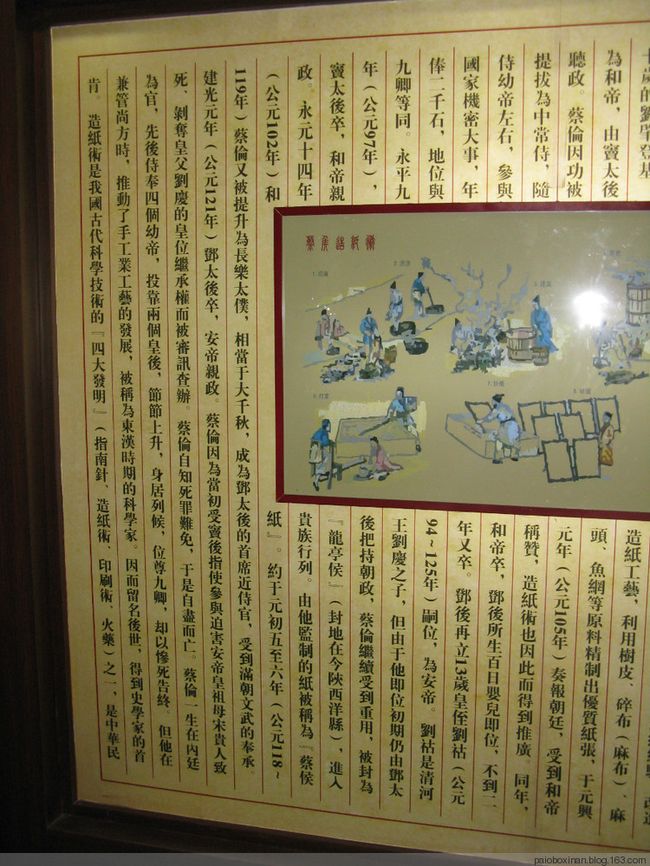 十歲的劉肇登基
為和帝，由竇太後
聽政。蔡倫因功被
提拔為中常侍，隨
侍幼帝左右，參與
國家機密大事，年
俸二千石，地位與
九卿等同。永平九
年（公元97年），
竇太後卒，和帝親
政。永元十四年
（公元102年）和
蔡侯造紙術
造紙工藝，利用樹皮、碎布（麻布）、麻
頭、魚網等原料精制出優質紙張，于元興
元年（公元105年）奏報朝廷，受到和帝
稱贊，造紙術也因此而得到推廣。同年，
和帝卒，鄧後所生百日嬰兒即位，不到二
年又卒。鄧後再立13歲皇侄劉祜（公元
94～125年）嗣位，為安帝。劉祜是清河
王劉慶之子，但由于他即位初期仍由鄧太
後把持朝政，蔡倫繼續受到重用，被封為
『龍亭侯』（封地在今陜西洋縣），進入
貴族行列。由他監制的紙被稱為『蔡侯
紙』。約于元初五至六年（公元118～
119年）蔡倫又被提升為長樂太僕，相當于大千秋，成為鄧太後的首席近侍官，受到滿朝文武的奉承
建光元年（公元121年）鄧太後卒，安帝親政。蔡倫因為當初受竇後指使參與迫害安帝皇祖母宋貴人致
死、剝奪皇父劉慶的皇位繼承權而被審訊查辦。蔡倫自知死罪難免，于是自盡而亡。蔡倫一生在內廷
為官，先後侍奉四個幼帝，投靠兩個皇後，節節上升，身居列候，位尊九卿，却以慘死告終。但他在
兼管尚方時，推動了手工業工藝的發展，被稱為東漢時期的科學家。因而留名後世，得到史學家的首
肯。造紙術是我國古代科學技術的『四大發明』（指南針、造紙術、印刷術、火藥）之一，是中華民
paioboxinan.blog.163.com